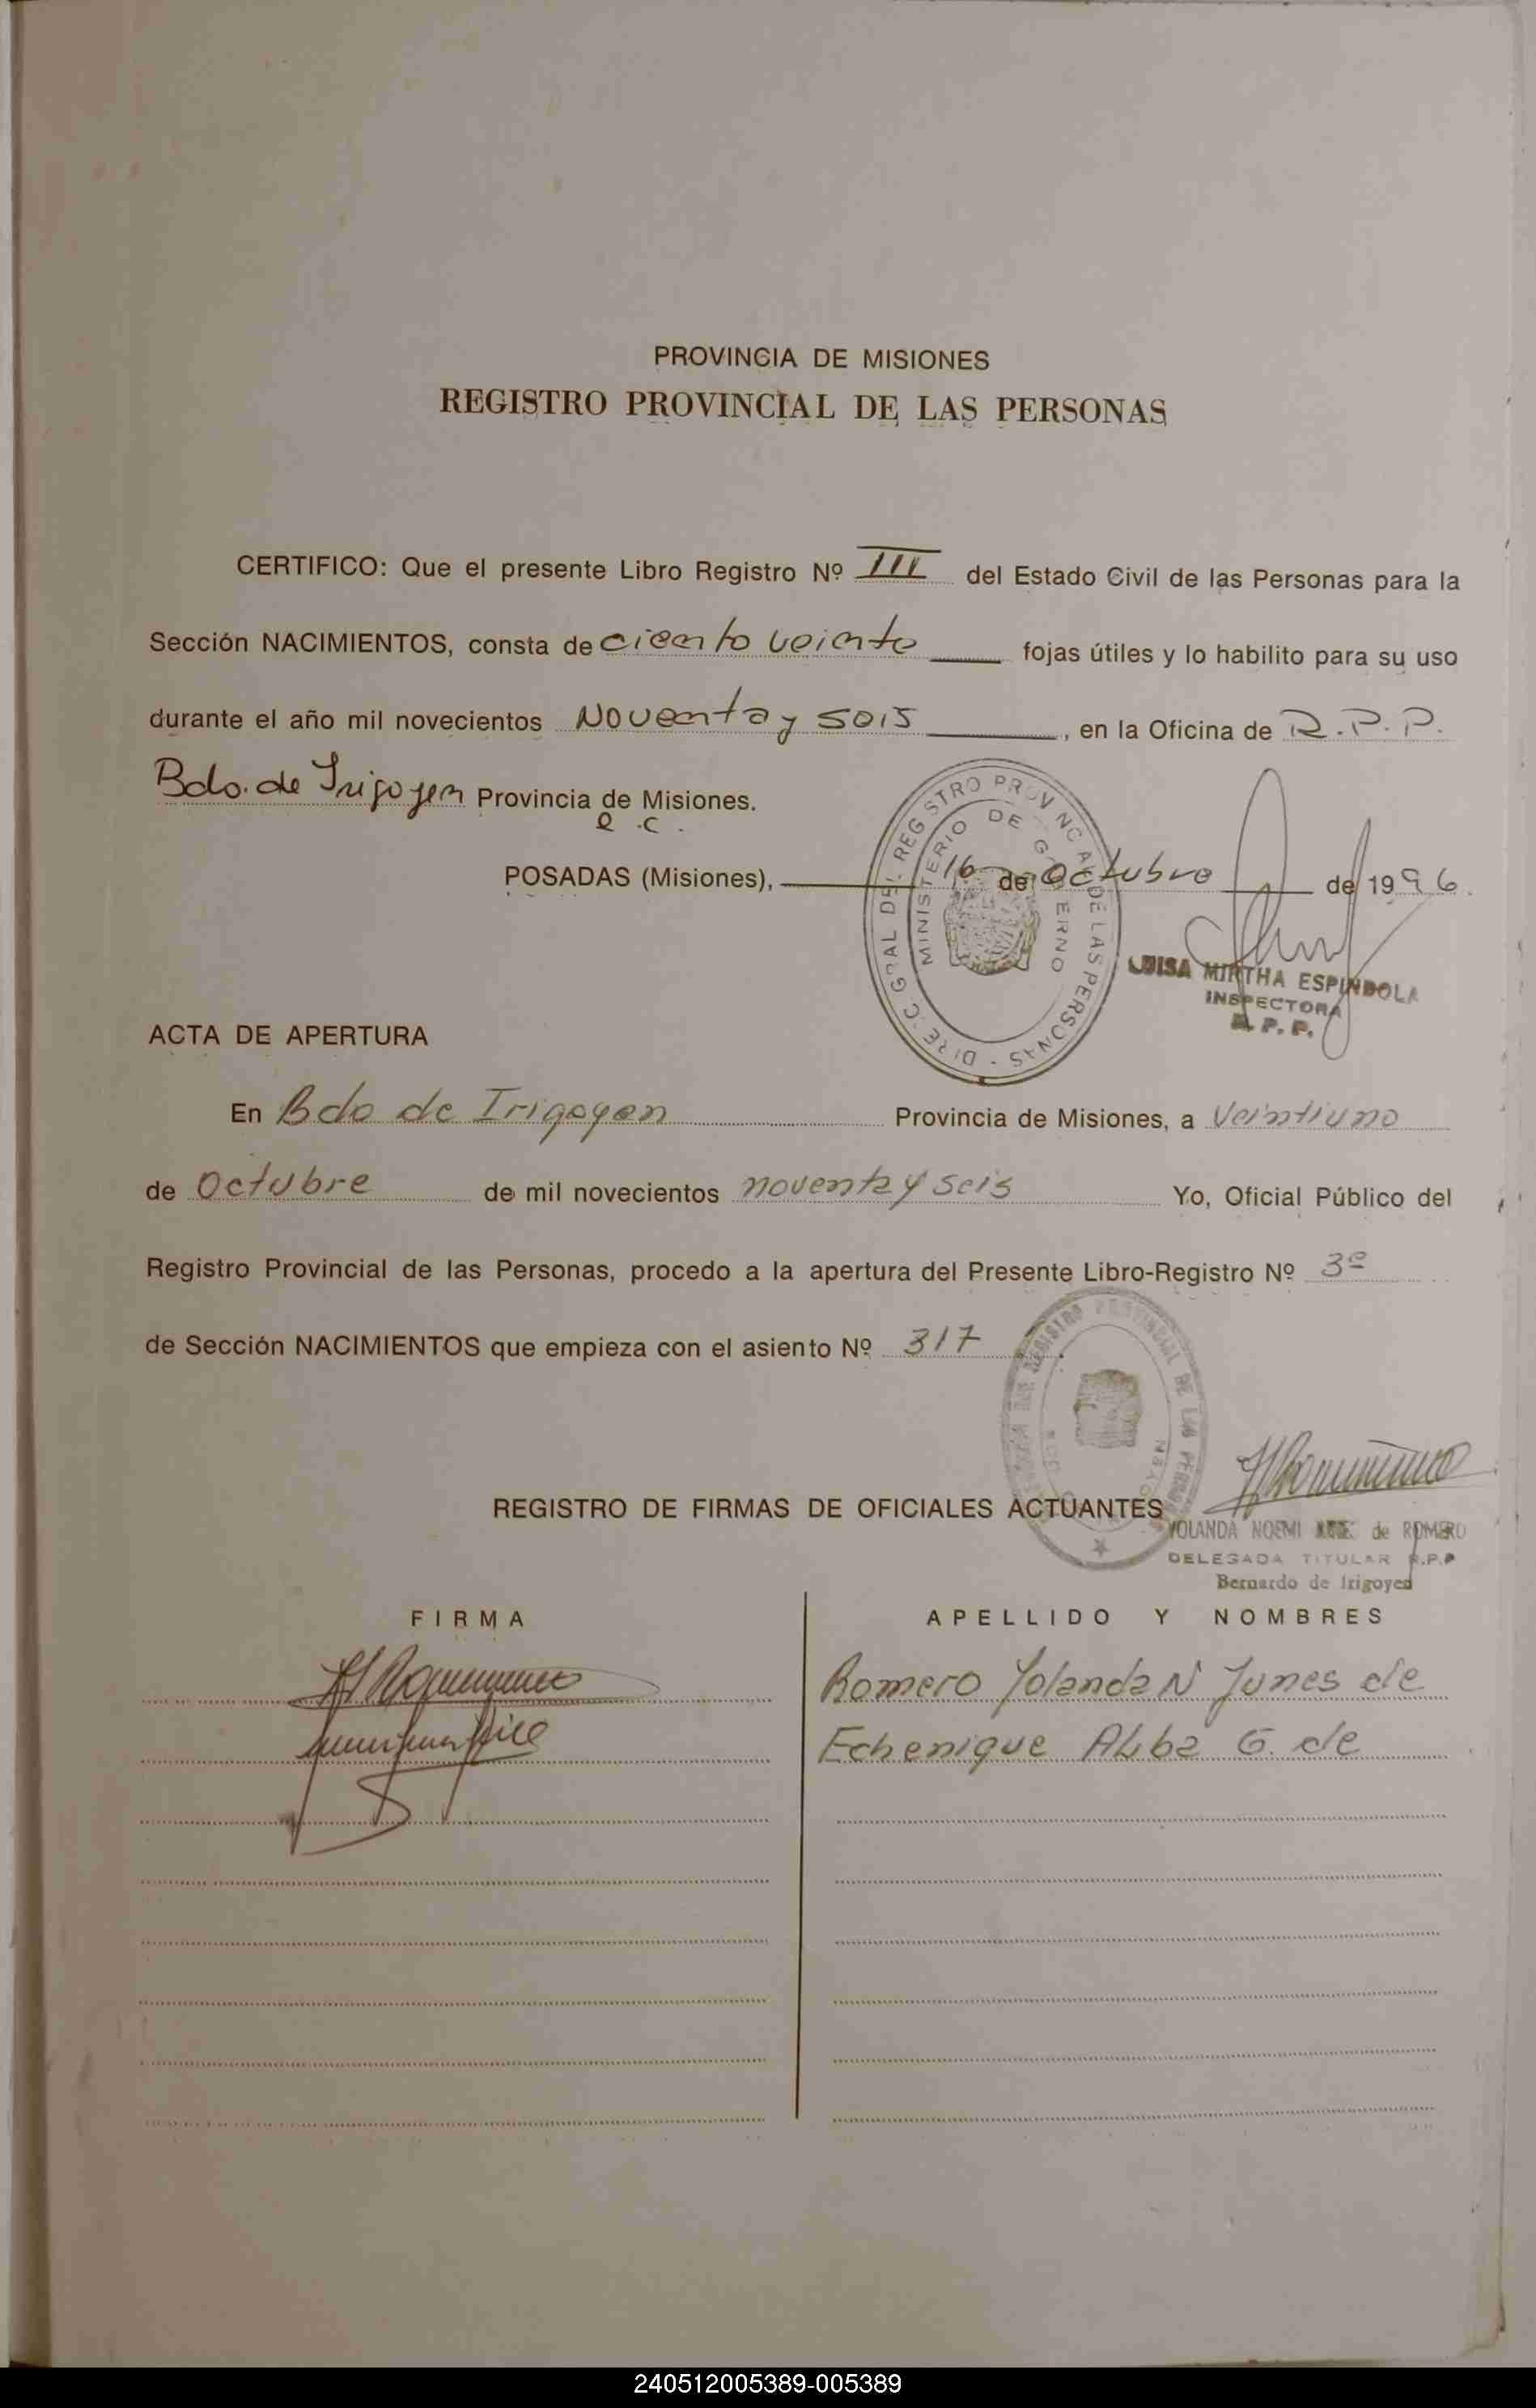 PROVINCIA DE MISIONES
REGISTRO PROVINCIAL DE LAS PERSONAS
CERTIFICO: Que el presente Libro Registro Nº III del Estado Civil de las Personas para la
Sección NACIMIENTOS, consta de ciento veinte fojas útiles y lo habilito para su uso
durante el año mil novecientos Noventa y seis, en la Oficina de R.P.P.
Bdo. de Irigoyen Provincia de Misiones.
e.c.
POSADAS (Misiones), 16 de Octubre de 1996.
DIREC. GRAL DEL REGISTRO PROVINCIAL DE LAS PERSONAS
MINISTERIO DE GOBIERNO
LUISA MIRTHA ESPINDOLA
INSPECTORA
R. P. P.
ACTA DE APERTURA
En Bdo de Irigoyen Provincia de Misiones, a Veintiuno
de Octubre de mil novecientos noventa y seis Yo, Oficial Público del
Registro Provincial de las Personas, procedo a la apertura del Presente Libro-Registro Nº 3º
de Sección NACIMIENTOS que empieza con el asiento Nº 317
REGISTRO PROVINCIAL DE LAS
REGISTRO DE FIRMAS DE OFICIALES ACTUANTES
YOLANDA NOEMI de ROMERO
DELEGADA TITULAR R.P.P
Bernardo de Irigoyen
FIRMA APELLIDO Y NOMBRES
Romero Yolanda N Junes de
Echenique Alba G. de
240512005389-005389